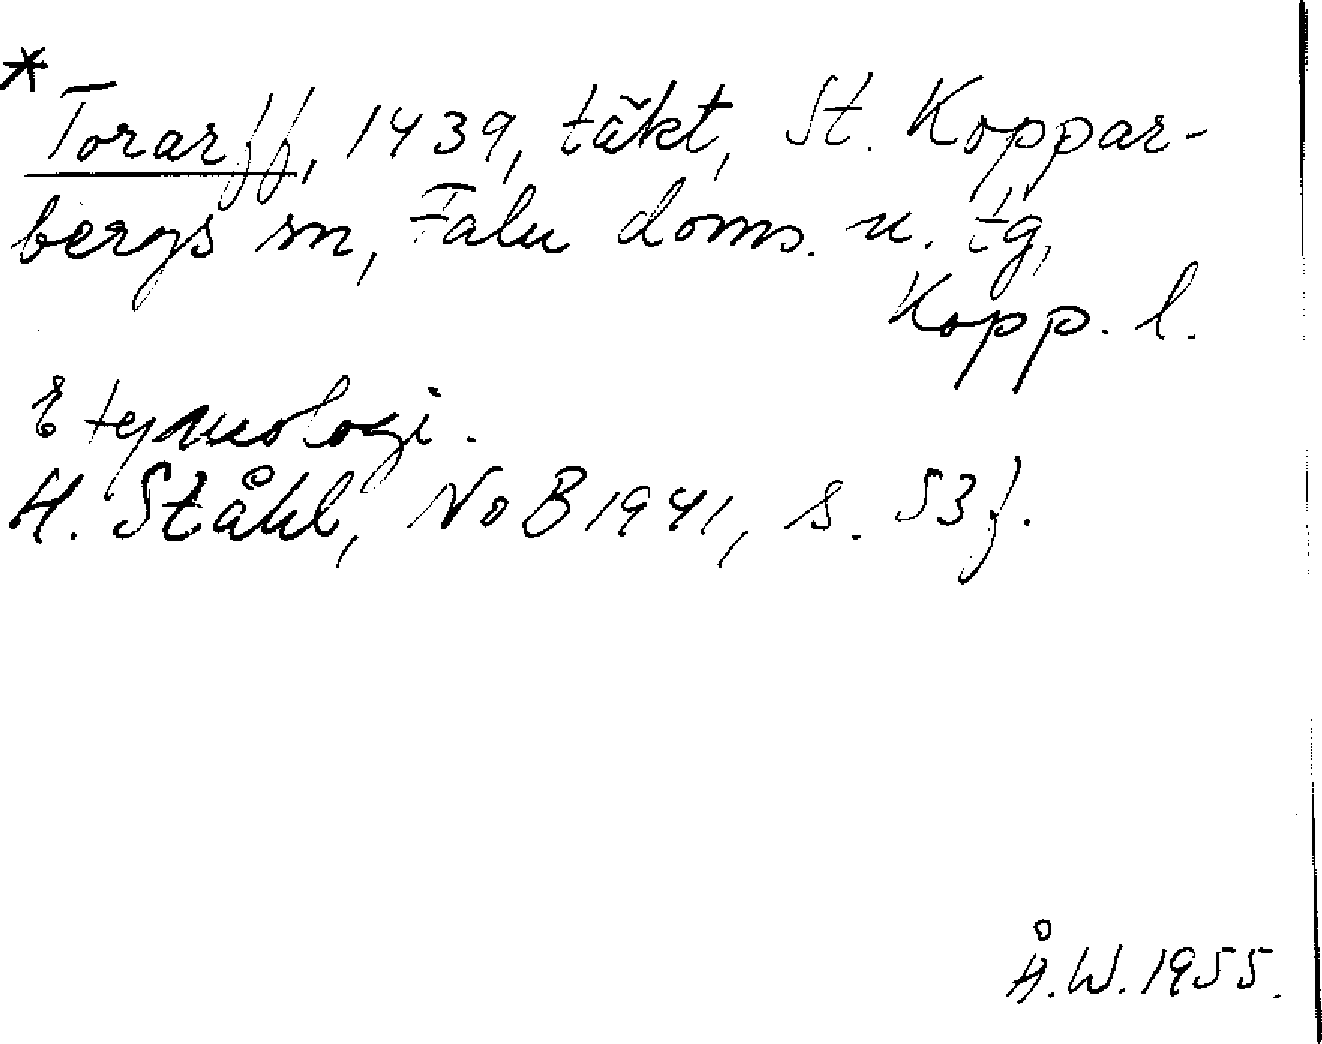 *
Torarff, 1439, täkt, St. Koppar-
bergs sn, Falu doms. u. tg,
Kopp. l.
Etymologi.
H. Ståhl, NoB 1941, s. 53 f.
Å.W. 1955.